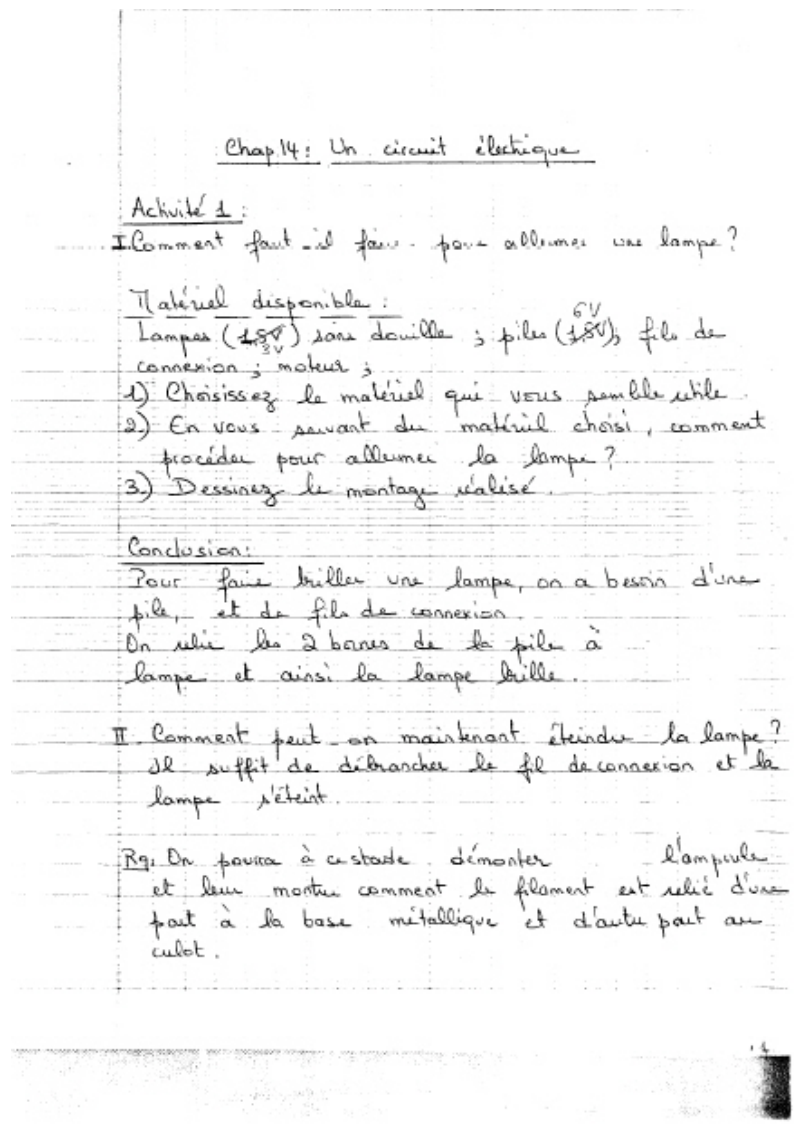 Chap.14: Un circuit électrique
Activité 1:
I. Comment faut-il faire pour allumer une lampe?
Matériel disponible:
6V
Lampes (1,5V) sans douille; piles (1,5V); fils de
3V
connexion; moteur;
1) Choisissez le matériel qui vous semble utile.
2) En vous servant du matériel choisi, comment
procéder pour allumer la lampe?
3) Dessinez le montage réalisé.
Conclusion:
Pour faire briller une lampe, on a besoin d'une
pile, et de fils de connexion.
On relie les 2 bornes de la pile à
lampe et ainsi la lampe brille.
II. Comment peut-on maintenant éteindre la lampe?
Il suffit de débrancher le fil de connexion et la
lampe s'éteint.
Rq: On pourra à ce stade démonter l'ampoule
et leur montrer comment le filament est relié d'une
part à la base métallique et d'autre part au
culot.